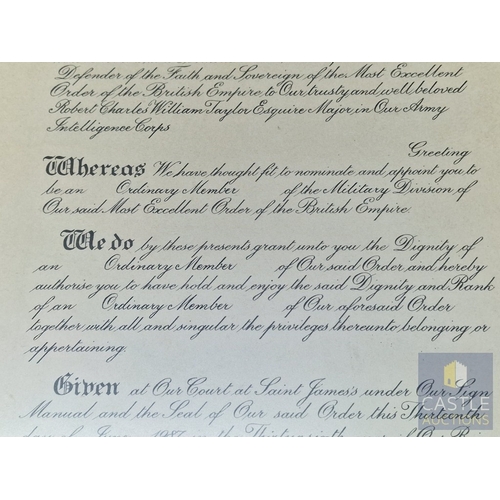 Defender of the Faith and Sovereign of the Most Excellent
Order of the British Empire to Our trusty and well beloved
Robert Charles William Taylor Esquire Major in Our Army
Intelligence Corps
Greeting
Whereas We have thought fit to nominate and appoint you to
be an Ordinary Member of the Military Division of
Our said Most Excellent Order of the British Empire.
We do by these presents grant unto you the Dignity of
an Ordinary Member of Our said Order and hereby
authorise you to have hold and enjoy the said Dignity and Rank
of an Ordinary Member of Our aforesaid Order
together with all and singular the privileges thereunto belonging or
appertaining.
Given at Our Court at Saint James's under Our Sign
Manual and the Seal of Our said Order this Thirteenth
day of June 1987 in the
CASTLE
AUCTIONS